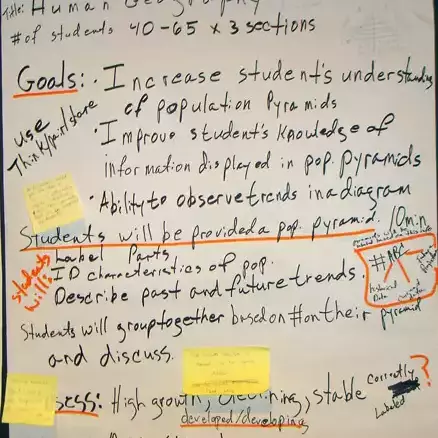 Title: Human Geography
# of students 40-65 x 3 sections
Goals: · Increase student's understanding
of population Pyramids
use
Think/pair/share
· Improve student's knowledge of
information displayed in pop. pyramids
· Ability to observe trends in a diagram
Students will be provided a pop. pyramid. 10min
Students
Will:
Label Parts
ID characteristics of pop.
Describe past and future trends.
#ABC
historical
Data
Students will group together based on # on their pyramid
and discuss.
ess: High growth, declining, stable correctly ?
Labeled
developed/developing